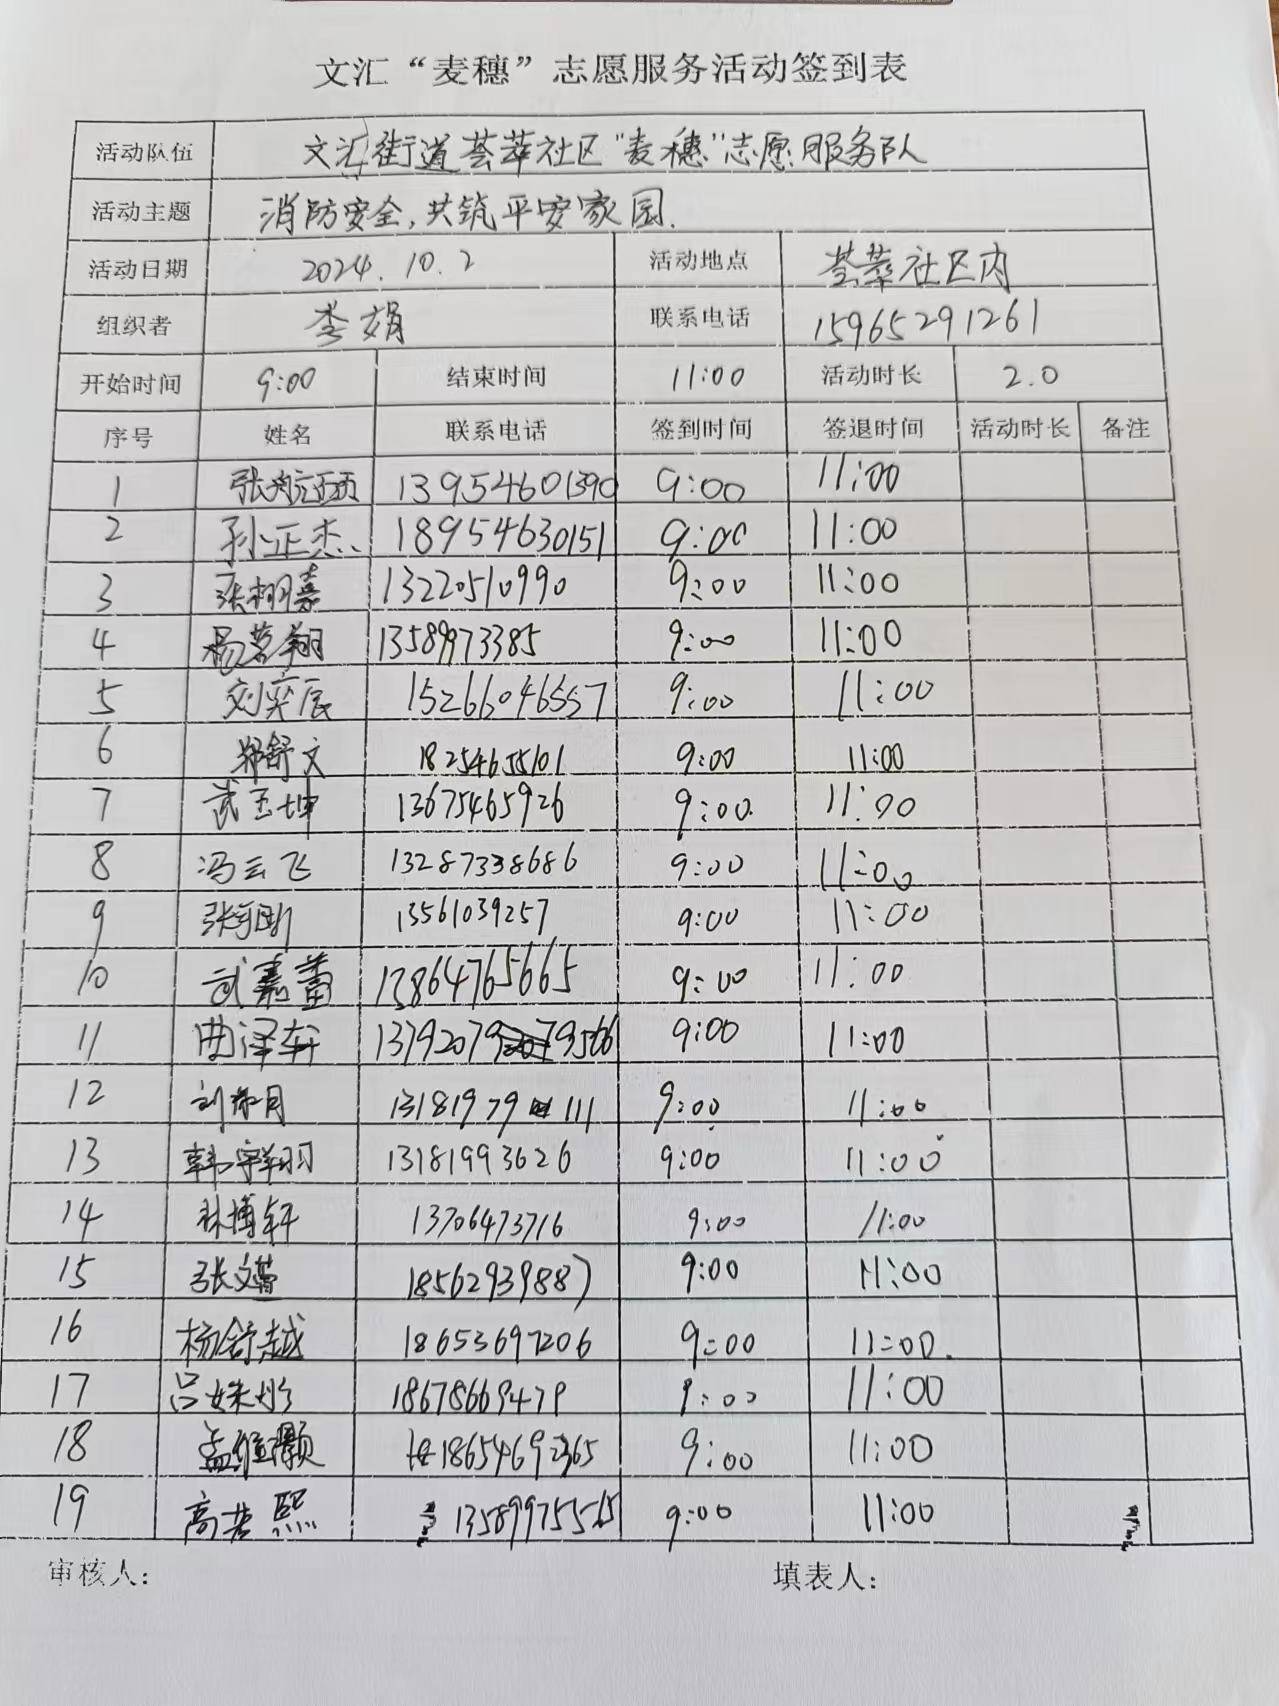 文汇“麦穗”志愿服务活动签到表
活动队伍 文汇街道荟萃社区“麦穗”志愿服务队
活动主题 消防安全,共筑平安家园.
活动日期 2024.10.2 活动地点 荟萃社区内
组织者 李娟 联系电话 15965291261
开始时间 9:00 结束时间 11:00 活动时长 2.0
序号 姓名 联系电话 签到时间 签退时间 活动时长 备注
1 13954601390 9:00 11:00
2 孙正杰 18954630151 9:00 11:00
3 张栩嘉 13220510990 9:00 11:00
4 杨茗翔 13589973385 9:00 11:00
5 刘奕辰 15266046557 9:00 11:00
6 郑舒文 18254655101 9:00 11:00
7 武玉坤 13675465926 9:00 11:00
8 冯云飞 13287338686 9:00 11:00
9 13561039257 9:00 11:00
10 武嘉蕾 13864765665 9:00 11:00
11 曲泽轩 9:00 11:00
12 13181979111 9:00 11:00
13 韩宇翔 13181993626 9:00 11:00
14 林博轩 13706473716 9:00 11:00
15 张文 18562939887 9:00 11:00
16 杨舒越 18653697206 9:00 11:00
17 吕姝彤 18678669479 9:00 11:00
18 孟维灏 18654692365 9:00 11:00
19 高若熙 13589975515 9:00 11:00
审核人: 填表人: